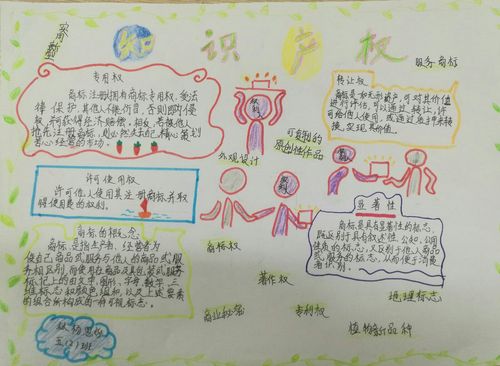 实用新型
知识产权
服务商标
专用权
商标注册拥有商标专用权,受法
律保护,其他人不能仿冒,否则即为侵
权,可获得经济赔偿。相反,若被他人
抢先注册商标,则必然失去
苦心经营的市场。
转让权
商标是如无形资产,可对其价值
进行评估,可以通过转让,许
可给他人使用,或通过质押来转
换,实现其价值。
权利
可复制的
原创性作品
外观设计
许可使用权
许可他人使用其注册商标并收
得使用费的权利。
权利
商标的概念
商标是指生产者、经营者为
使自己商品或服务与他人的商品或服
务相区别,而使用在商品及其包装或服务
标记上的由文字、图形、字母、数字、三
维标志和颜色组和,以及上述要素
的组合所构成的一种可视标志。
显著性
商标是具有显著性的标志,
既区别于具有叙述性、公知、公用
性质的标志,又区别于他人商品
或服务的标志,从而便于消费
者识别。
商标权
著作权
地理标志
商业秘密
专利权
植物新品种
五(2)班